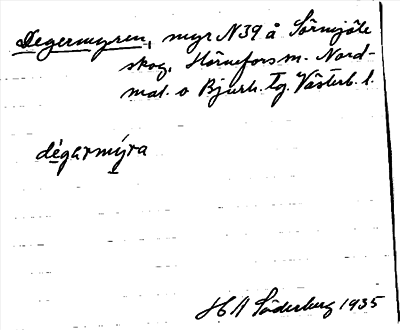 Degermyren, myr N39 å Sörmjöle
skog, Hörnefors m. Nord-
mal. o Bjurh. Tg. Västerb. l.
dégarmýra
H A Söderberg 1935